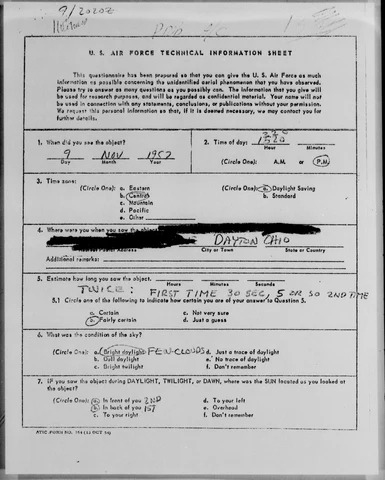 9/2020Z
U. S. AIR FORCE TECHNICAL INFORMATION SHEET
This questionnaire has been prepared so that you can give the U. S. Air Force as much
information as possible concerning the unidentified aerial phenomenon that you have observed.
Please try to answer as many questions as you possibly can. The information that you give will
be used for research purposes, and will be regarded as confidential material. Your name will not
be used in connection with any statements, conclusions, or publications without your permission.
We request this personal information so that, if it is deemed necessary, we may contact you for
further details.
1. When did you see the object?
9 NOV 1957
Day Month Year
2. Time of day:
1520
Hour Minutes
(Circle One): A.M. or P.M.
3. Time zone:
(Circle One): a. Eastern
b. Central
c. Mountain
d. Pacific
e. Other
(Circle One): a. Daylight Saving
b. Standard
4. Where were you when you saw the object?
DAYTON OHIO
Nearest Postal Address City or Town State or Country
Additional remarks:
5. Estimate how long you saw the object.
Hours Minutes Seconds
TWICE: FIRST TIME 30 SEC, 5 OR SO 2ND TIME
5.1 Circle one of the following to indicate how certain you are of your answer to Question 5.
a. Certain
b. Fairly certain
c. Not very sure
d. Just a guess
6. What was the condition of the sky?
(Circle One): a. Bright daylight FEW-CLOUDS
b. Dull daylight
c. Bright twilight
d. Just a trace of daylight
e. No trace of daylight
f. Don't remember
7. IF you saw the object during DAYLIGHT, TWILIGHT, or DAWN, where was the SUN located as you looked at
the object?
(Circle One): a. In front of you 2ND
b. In back of you 1ST
c. To your right
d. To your left
e. Overhead
f. Don't remember
ATIC FORM NO. 164 (13 OCT 54)